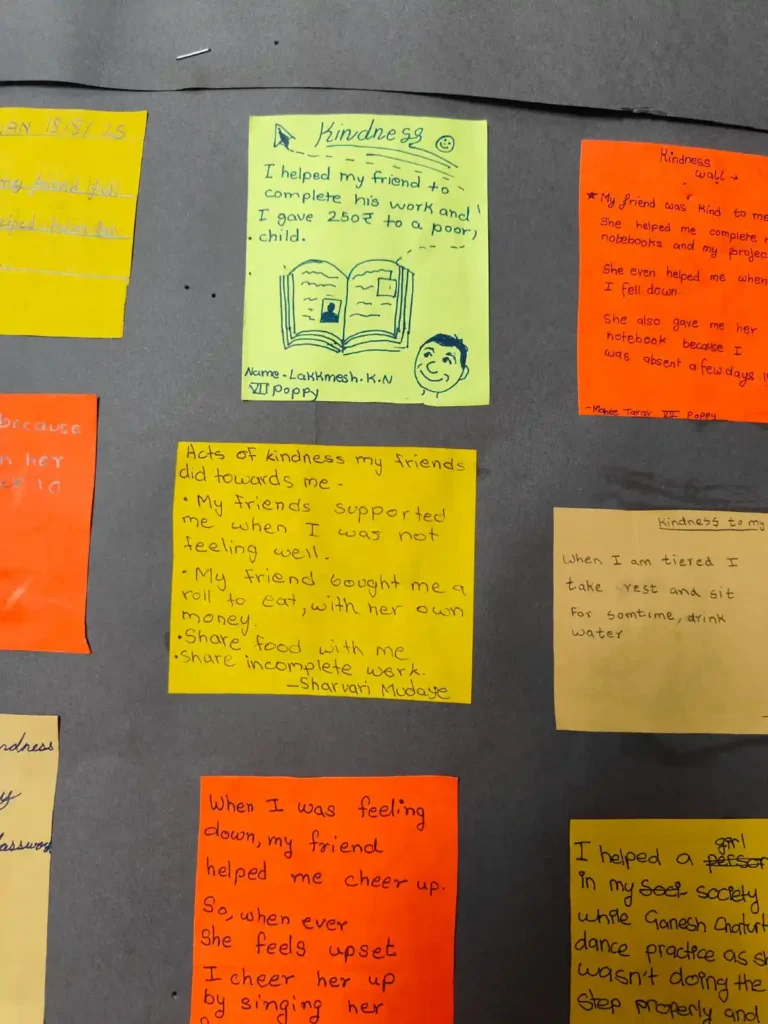 18/8/25
my friend
Kindness
I helped my friend to
complete his work and
I gave 250₹ to a poor,
child.
Name - Lakkmesh.K.N
VII Poppy
Kindness
wall →
★ My friend was kind to me
She helped me complete
notebooks and my projec
She even helped me when
I fell down.
She also gave me her
notebook because I
was absent a few days
VII Poppy
because
her
10
Acts of kindness my friends
did towards me -
• My friends supported
me when I was not
feeling well.
• My friend bought me a
roll to eat, with her own
money.
• Share food with me
• Share incomplete work.
- Sharvari Mudaye
Kindness to my
When I am tiered I
take rest and sit
For somtime, drink
water
ndness
y
When I was feeling
down, my friend
helped me cheer up.
So, when ever
She feels upset
I cheer her up
by singing her
girl
I helped a person
in my soci society
while Ganesh Chaturt
dance practice as s
wasn't doing the
step properly and